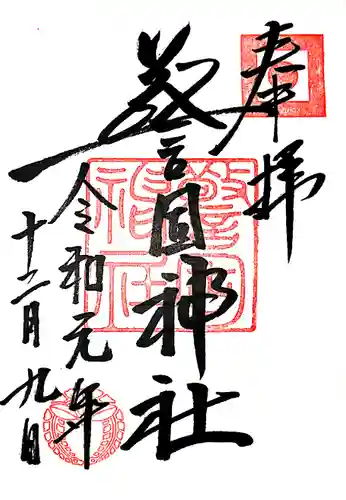 奉拝
警固神社
令和元年
十二月九日